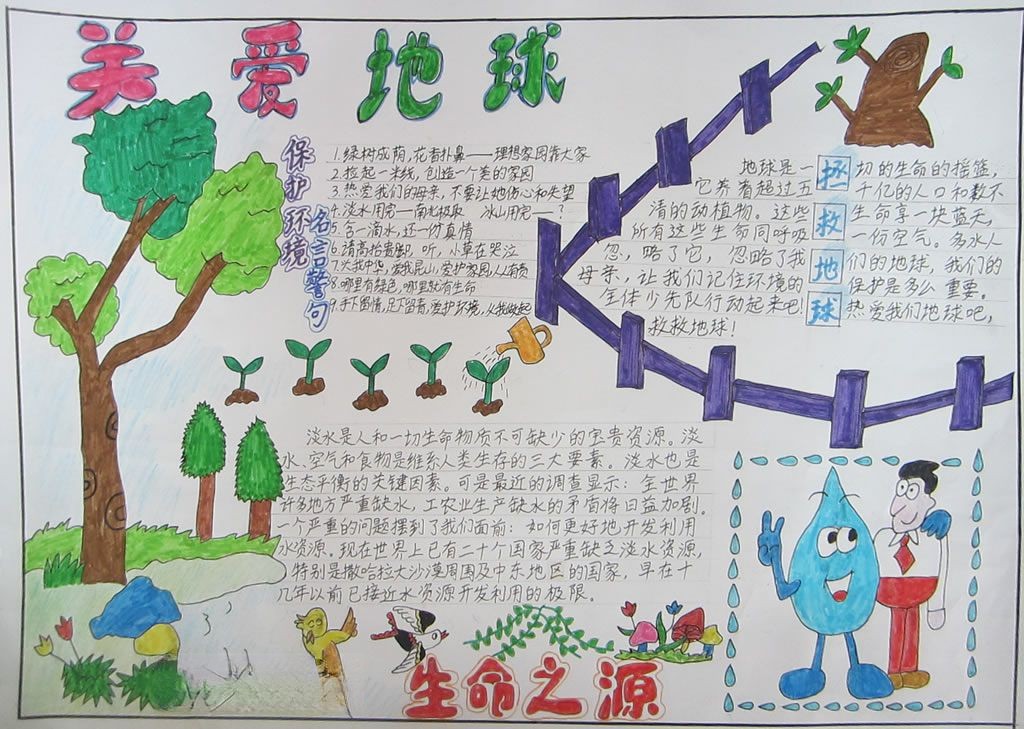 关爱地球
保护环境
名言警句
1.绿树成荫,花香扑鼻——理想家园靠大家
2.捡起一末线,创造一个美的家园
3.热爱我们的母亲,不要让她伤心和失望
4.淡水用完——南北极取 冰山用完——?
5.含一滴水,还一份真情
6.请高抬贵脚,听,小草在哭泣
7.火我中华,爱我昆山,爱护家园人人有责
8.哪里有绿色,哪里就有生命
9.手下留情,足下留青,爱护环境,从我做起
拯救地球
地球是一切的生命的摇篮,
它养着超过五千亿的人口和数不
清的动植物。这些生命享一块蓝天,
所有这些生命同呼吸一份空气。多水人
忽,略了它,忽略了我们的地球,我们的
母亲,让我们记住环境的保护是多么重要。
全体少先队行动起来吧!热爱我们地球吧,
救救地球!
淡水是人和一切生命物质不可缺少的宝贵资源。淡
水、空气和食物是维系人类生存的三大要素。淡水也是
生态平衡的关键因素。可是最近的调查显示:全世界
许多地方严重缺水,工农业生产缺水的矛盾将日益加剧。
一个严重的问题摆到了我们面前:如何更好地开发利用
水资源。现在世界上已有二十个国家严重缺乏淡水资源,
特别是撒哈拉大沙漠周围及中东地区的国家,早在十
几年以前已接近水资源开发利用的极限。
生命之源